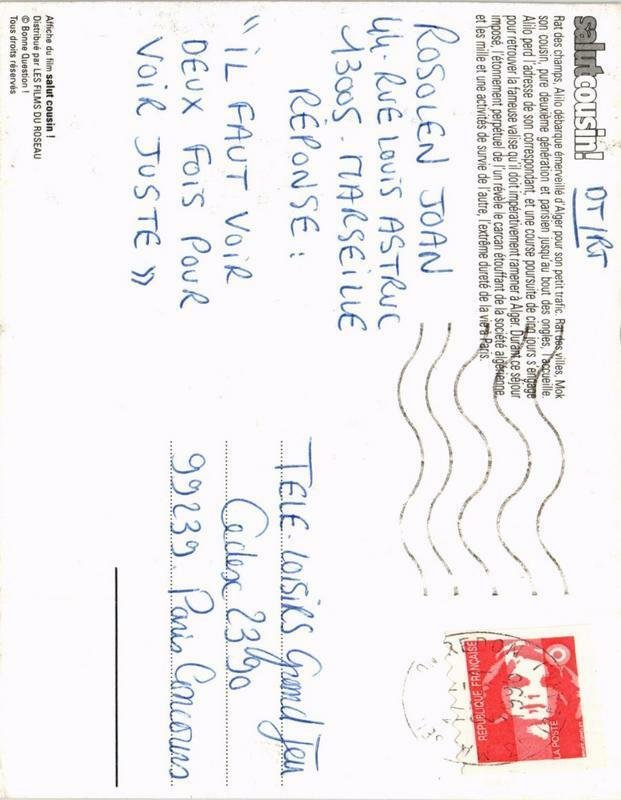 salut cousin!
Rat des champs, Alilo débarque émerveillé d'Alger pour son petit trafic. Rat des villes, Mok
son cousin, pure deuxième génération et parisien jusqu'au bout des ongles, l'accueille.
Alilo perd l'adresse de son correspondant, et une course poursuite de cinq jours s'engage
pour retrouver la fameuse valise qu'il doit impérativement ramener à Alger. Durant ce séjour
imposé, l'étonnement perpétuel de l'un révèle le carcan étouffant de la société algérienne,
et les mille et une activités de survie de l'autre, l'extrême dureté de la vie à Paris.
DT/RT
ROSOLEN JOAN
44. RUE LOUIS ASTRUC
13005. MARSEILLE
REPONSE :
"IL FAUT VOIR
DEUX FOIS POUR
VOIR JUSTE"
Affiche du film salut cousin !
Distribué par LES FILMS DU ROSEAU
© Bonne Question !
Tous droits réservés
REPUBLIQUE FRANÇAISE
LA POSTE
TELE-LOISIRS Grand Jeu
Cedex 23490
99239. Paris Concours